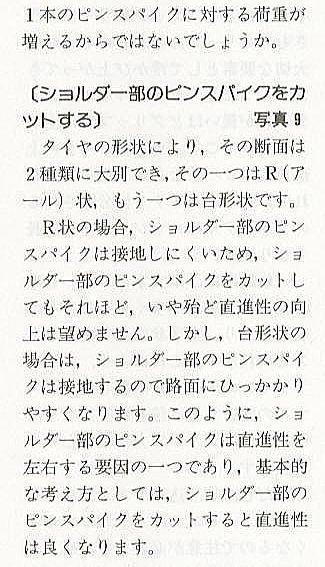 1本のピンスパイクに対する荷重が
増えるからではないでしょうか。
〔ショルダー部のピンスパイクをカ
ットする〕 写真9
タイヤの形状により，その断面は
2種類に大別でき，その一つはR(ア
ール）状，もう一つは台形状です。
R状の場合，ショルダー部のピン
スパイクは接地しにくいため，ショ
ルダー部のピンスパイクをカットし
てもそれほど，いや殆ど直進性の向
上は望めません。しかし，台形状の
場合は，ショルダー部のピンスパイ
クは接地するので路面にひっかかり
やすくなります。このように，ショ
ルダー部のピンスパイクは直進性を
左右する要因の一つであり，基本的
な考え方としては，ショルダー部の
ピンスパイクをカットすると直進性
は良くなります。